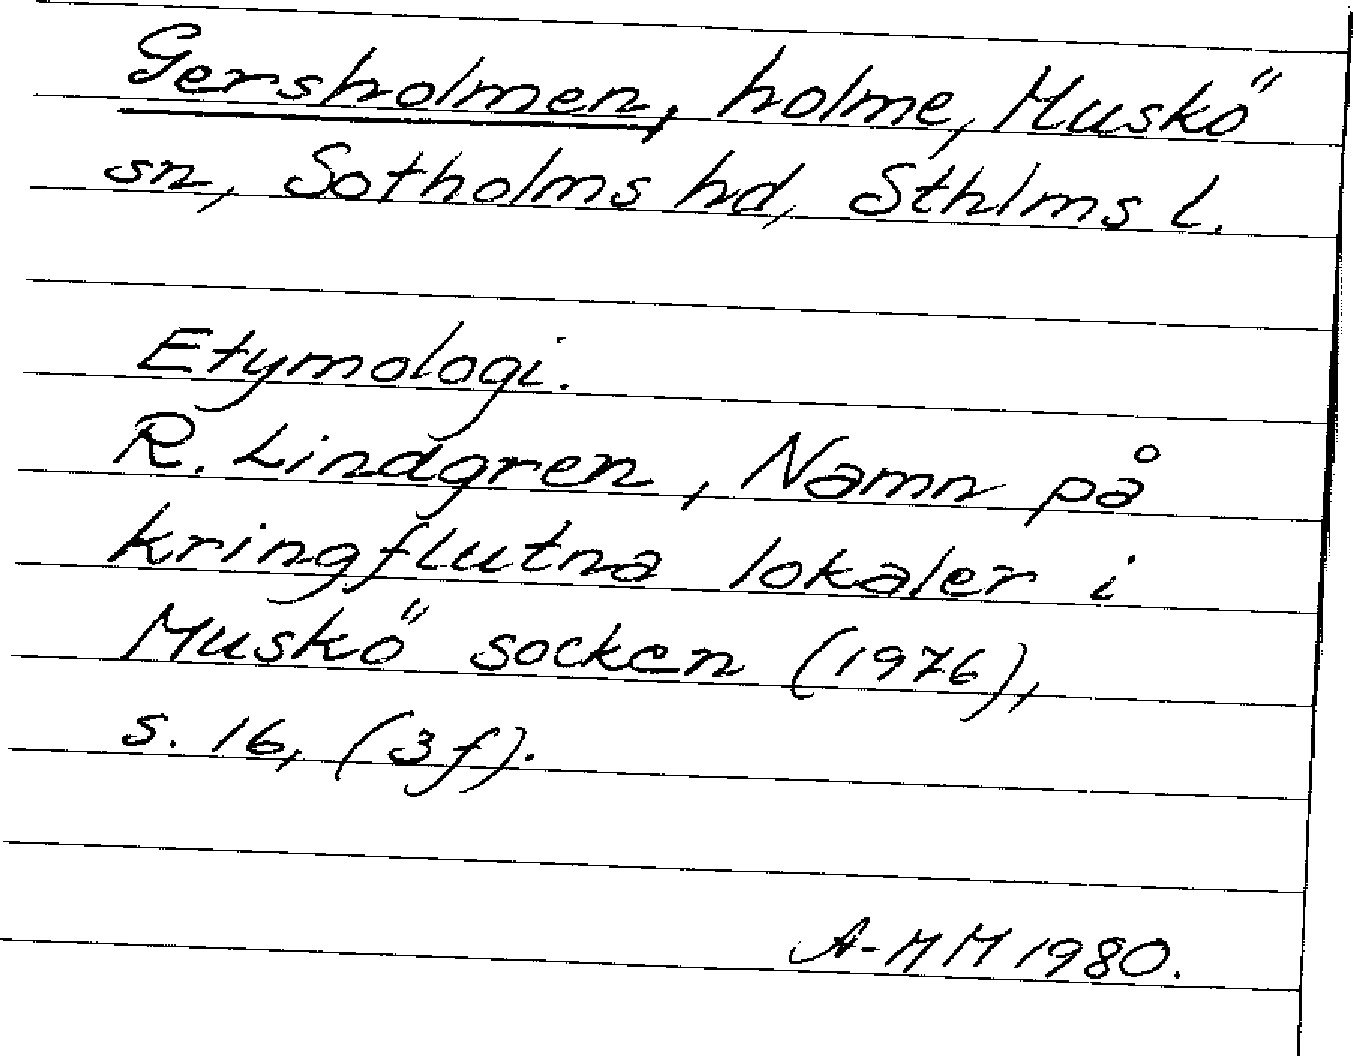 Gersholmen, holme, Muskö
sn, Sotholms hd, Sthlms l.
Etymologi.
R. Lindgren, Namn på
kringflutna lokaler i
Muskö socken (1976),
s. 16, (3f).
A-MM 1980.